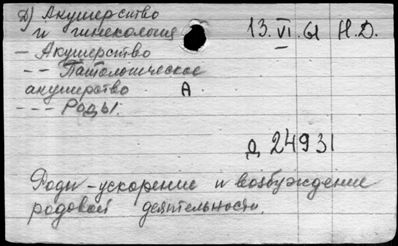 Д) Акушерство
и гинекология 13.VI.61 Н.Д.
— Акушерство
-- Патологическое
акушерство А
--- Роды.
Д 24931
Роды - ускорение и возбуждение
родовой деятельности.